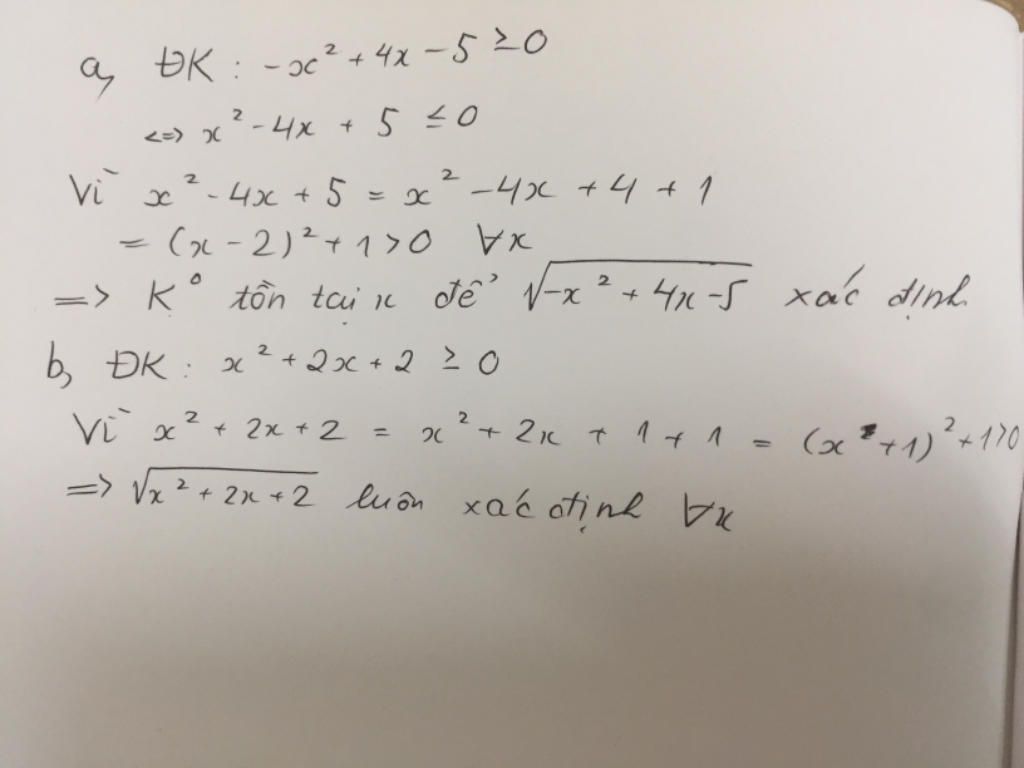 a, ĐK : -x² + 4x - 5 ≥ 0
<=> x² - 4x + 5 ≤ 0
Vì x² - 4x + 5 = x² - 4x + 4 + 1
= (x - 2)² + 1 > 0 ∀x
=> K° tồn tại x để √(-x² + 4x - 5) xác định
b, ĐK : x² + 2x + 2 ≥ 0
Vì x² + 2x + 2 = x² + 2x + 1 + 1 = (x + 1)² + 1 > 0
=> √(x² + 2x + 2) luôn xác định ∀x